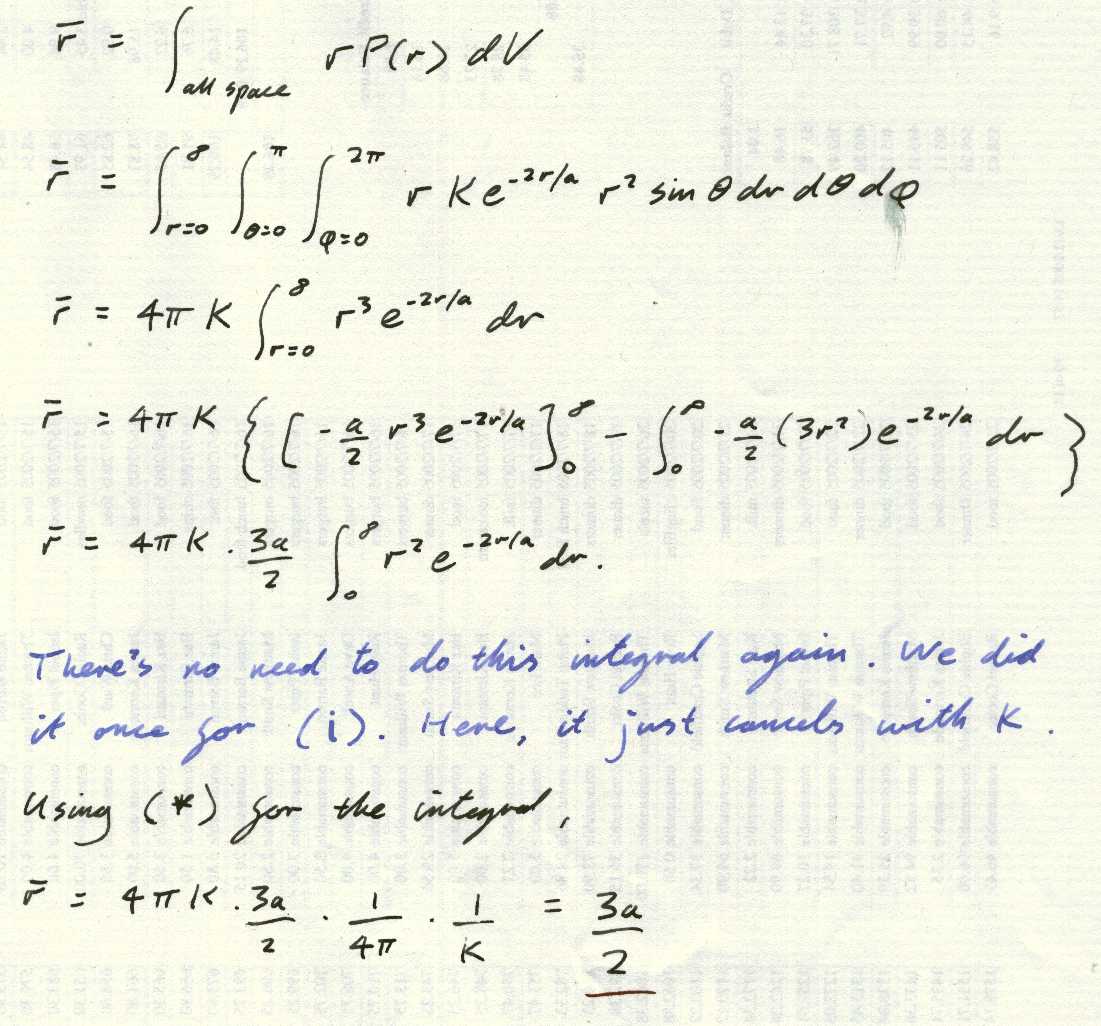 r̄ = ∫_{all space} r P(r) dV
r̄ = ∫_{r=0}^{∞} ∫_{θ=0}^{π} ∫_{φ=0}^{2π} r K e^{-2r/a} r² sin θ dr dθ dφ
r̄ = 4π K ∫_{r=0}^{∞} r³ e^{-2r/a} dr
r̄ = 4π K { [ -a/2 r³ e^{-2r/a} ]_0^∞ - ∫_0^∞ -a/2 (3r²) e^{-2r/a} dr }
r̄ = 4π K . 3a/2 ∫_0^∞ r² e^{-2r/a} dr.
There's no need to do this integral again. We did
it once for (i). Here, it just cancels with K.
Using (*) for the integral,
r̄ = 4π K . 3a/2 . 1/4π . 1/K = 3a/2